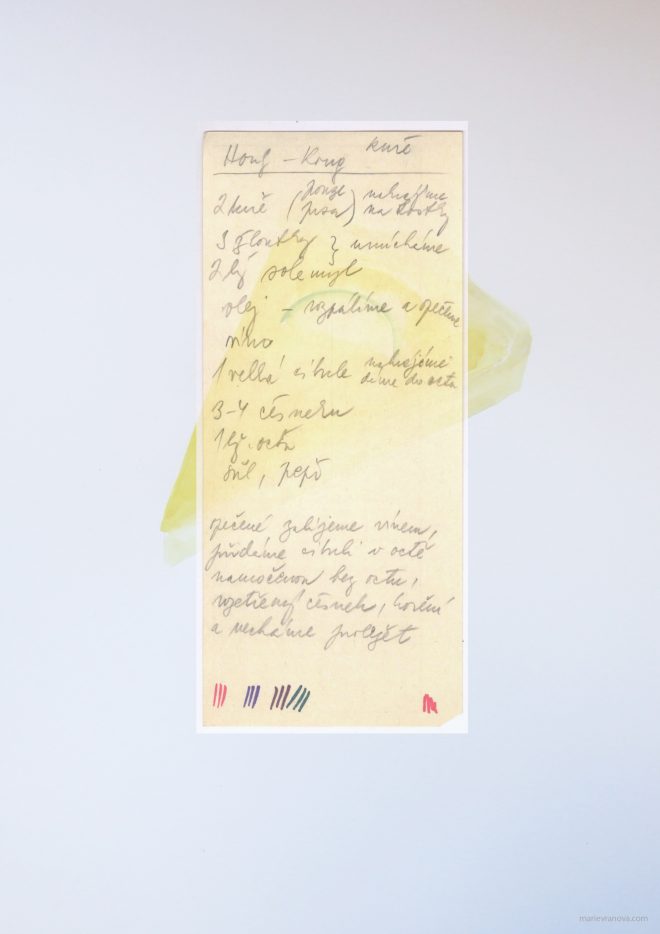 Hong - Kong kuře
2 kuře (pouze prsa) nakrájíme na kostky
3 žloutky } umícháme
2 lž solamyl
olej - rozpálíme a opečeme
víno
1 velká cibule nakrájíme dáme do octa
3-4 česneku
1 lž. octa
sůl, pepř
opečené zalijeme vínem,
přidáme cibuli v octě
namočenou bez octa,
rozetřený česnek, koření
a necháme proležet
marievranova.com